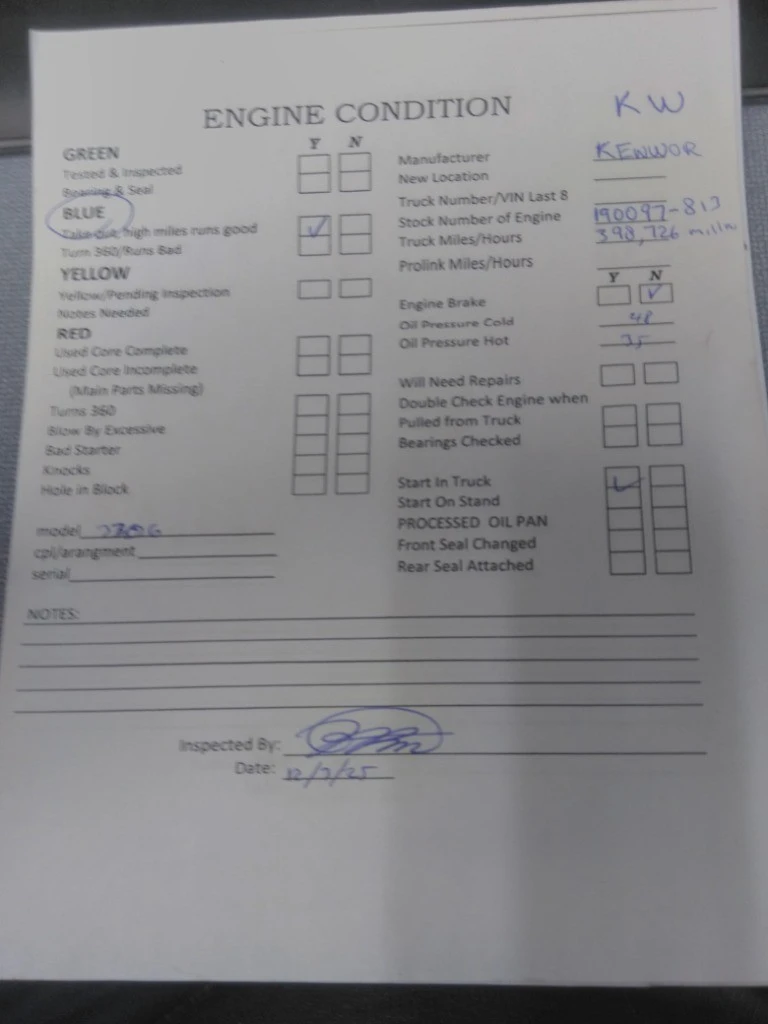 ENGINE CONDITION
KW
Y N
GREEN
Tested & Inspected
Bearing & Seal
BLUE
Take out, high miles runs good
Turn 360/Runs Bad
YELLOW
Yellow/Pending Inspection
Notes Needed
RED
Used Core Complete
Used Core Incomplete
(Main Parts Missing)
Turns 360
Blow By Excessive
Bad Starter
Knocks
Hole in Block
model
cpl/arangment
serial
Manufacturer KENWOR
New Location
Truck Number/VIN Last 8
Stock Number of Engine 190097-813
Truck Miles/Hours 398,726 miles
Prolink Miles/Hours
Y N
Engine Brake
Oil Pressure Cold 48
Oil Pressure Hot 35
Will Need Repairs
Double Check Engine when
Pulled from Truck
Bearings Checked
Start In Truck
Start On Stand
PROCESSED OIL PAN
Front Seal Changed
Rear Seal Attached
NOTES:
Inspected By:
Date: 12/3/25